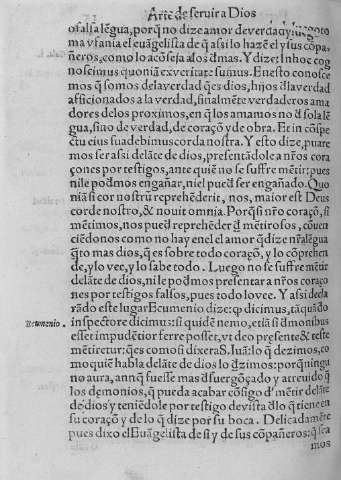 Arte de seruir a Dios
o falsa lẽgua, porq̃ no dize amor de verdad y luego to
ma vfania el euãgelista de q̃ assi lo hazẽ el y sus cõpa-
ñeros, como lo acõseja a los dmas. Y dize: In hoc cog
noscimus quoniã ex veritate sumus. En esto conosce
mos q̃ somos dela verdad q̃ es dios, hijos dla verdad
afficionados a la verdad, finalmẽte verdaderos ama
dores delos proximos, en q̃ los amamos no d sola lẽ
gua, sino de verdad, de coraçõ y de obra. Et in cõspe
ctu eius suadebimus corda nostra. Y esto dize, puare
mos ser assi delãte de dios, presentãdole a nr̃os cora
çones por testigos, ante quiẽ no se suffre mẽtir: pues
ni le podmos engañar, ni el pued ser engañado. Quo
niã si cor nostrũ reprehẽderit, nos, maior est Deus
corde nostro, & nouit omnia. Porq̃ si nr̃o coraçõ, si
mẽtimos, nos pued reprehẽder d mẽtirosos, cõuen
ciẽdonos como no hay en el el amor q̃ dize nr̃a lẽgua
q̃to mas dios, q̃ es sobre todo coraçõ, y lo cõprehen
de, y lo vee, y lo sabe todo. Luego no se suffre mẽtir
delãte de dios, ni le podmos presentar a nr̃os coraço
nes por testigos falsos, pues todo lo vee. Y assi decla
rãdo este lugar Ecumenio dize: q̃ dicimus, tãquã do
Ecumenio.
inspectore dicimus: si quidẽ nemo, etiã si dmonibus
esset impudẽtior ferre posset, vt deo presente & teste
mẽtiretur: q̃ es como si dixera S. Iuã: lo q̃ dezimos, co
mo quiẽ habla delãte de dios lo dzimos: porq̃ ningu
no aura, annq̃ fuesse mas dsuergõçado y atreuido q̃
los demonios, q̃ pueda acabar cõsigo d mẽtir delãte
de dios y teniẽdole por testigo de vista dlo q̃ tiene en
su coraçõ y de lo q̃ dize por su boca. Delicadamẽte
pues dixo el Euãgelista de si y de sus cõpañeros: q̃ sea
mos